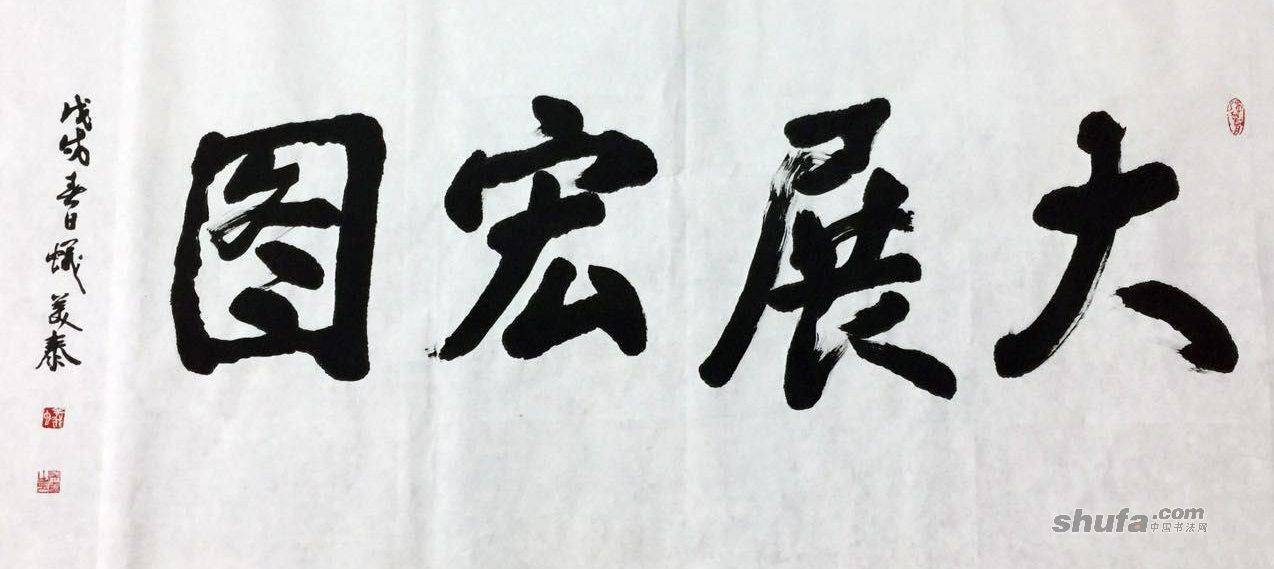 大展宏图
戊戌春日 美泰
shufa.com
中国书法网